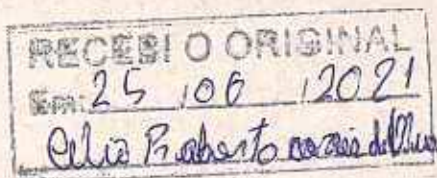 RECEBI O ORIGINAL
Em: 25 / 06 / 2021
Célio Roberto